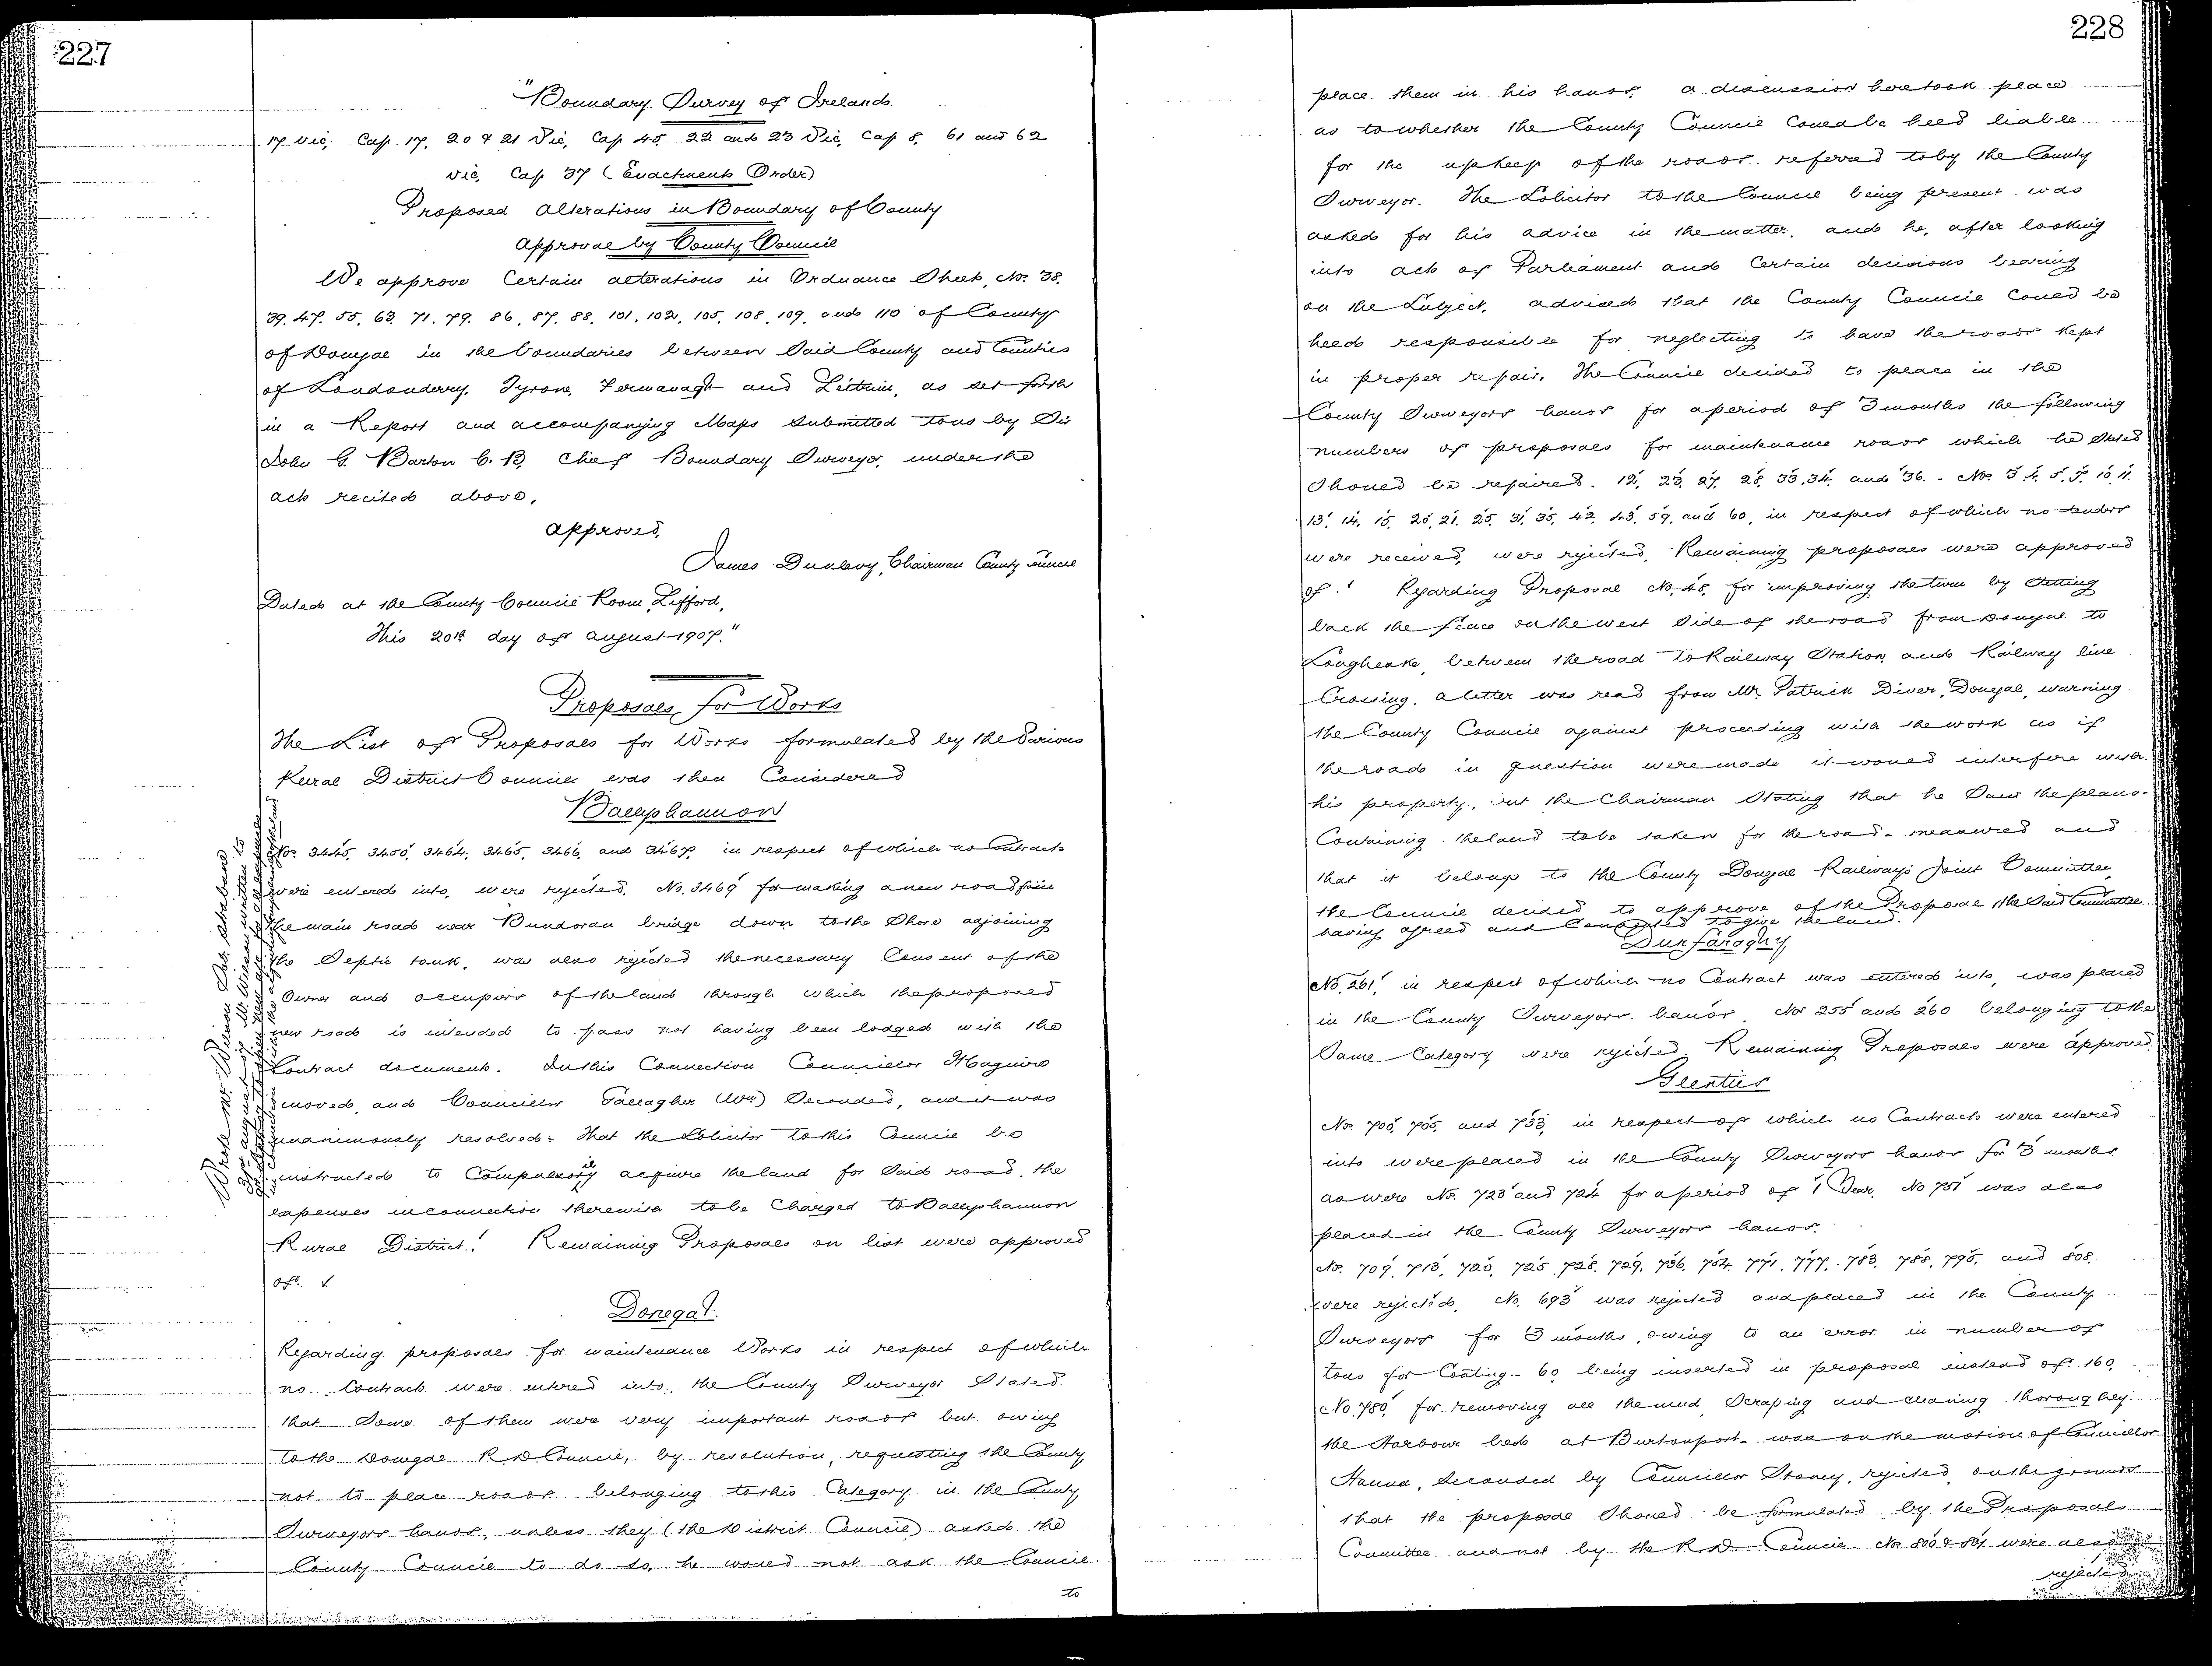 227
"Boundary Survey of Ireland.
17 Vic, Cap 17, 20 & 21 Vic, Cap 45, 22 and 23 Vic, Cap 8, 61 and 62
Vic, Cap 37 (Enactments Order)
Proposed Alterations in Boundary of County
Approval by County Council
We approve Certain alterations in Ordnance Sheets, Nos. 38,
39, 47, 55, 63, 71, 79, 86, 87, 88, 101, 102, 105, 108, 109, and 110 of County
of Donegal in the boundaries between Said County and Counties
of Londonderry, Tyrone, Fermanagh and Leitrim, as set forth
in a Report and accompanying Maps submitted to us by Sir
John G. Barton C.B. Chief Boundary Surveyor, under the
acts recited above.
Approved,
James Dunlevy, Chairman County Council
Dated at the County Council Room, Lifford,
This 20th day of August 1907."
Proposals for Works
The List of Proposals for Works formulated by the Various
Rural District Councils was then Considered
Ballyshannon
Nos. 3445, 3450, 3464, 3465, 3466, and 3467, in respect of which no Contracts
were entered into, were rejected. No. 3469 for making a new road from
the main road near Bundoran bridge down to the Shore adjoining
the Septic tank, was also rejected the necessary Consent of the
Owner and occupiers of the land through which the proposed
new road is intended to pass not having been lodged with the
Contract documents. In this Connection Councillor Maguire
moved, and Councillor Gallagher (Wm) Seconded, and it was
unanimously resolved:- That the Solicitor to this Council be
instructed to Compulsorily acquire the land for Said road, the
expenses in connection therewith to be Charged to Ballyshannon
Rural District. Remaining Proposals on list were approved
of.
Wrote Mr. Wilson
Donegal.
Regarding proposals for maintenance Works in respect of which
no Contracts were entered into, the County Surveyor Stated
that Some of them were very important roads but owing
to the Donegal R D Council, by resolution, requesting the County
not to place roads belonging to this Category in the County
Surveyors hands, unless they (the District Council) asked the
County Council to do so, he would not ask the Council
to
228
place them in his hands. A discussion here took place
as to whether the County Council Could be held liable
for the upkeep of the roads referred to by the County
Surveyor. The Solicitor to the Council being present was
asked for his advice in the matter, and he, after looking
into acts of Parliament and Certain decisions bearing
on the Subject, advised that the County Council Could be
held responsible for neglecting to have the roads kept
in proper repair. The Council decided to place in the
County Surveyors hands for a period of 3 months the following
numbers of proposals for maintenance roads which he Stated
Should be repaired. 12, 23, 27, 28, 33, 34, and 36. - Nos. 3, 4, 5, 7, 10, 11,
13, 14, 15, 20, 21, 25, 31, 35, 42, 43, 59, and 60, in respect of which no tenders
were received, were rejected. Remaining proposals were approved
of. Regarding Proposal No. 48, for improving the turn by Setting
back the fence on the west Side of the road from Donegal to
Lougheask, between the road to Railway Station and Railway line
Crossing, a letter was read from Mr. Patrick Diver, Donegal, warning
the County Council against proceeding with the work as if
the roads in question were made it would interfere with
his property, but the Chairman Stating that he Saw the plans
Containing the land to be taken for the road measured and
that it belongs to the County Donegal Railways Joint Committee,
the Council decided to approve of the Proposal, the Said Committee
having agreed and Consented to give the land.
Dunfanaghy
No. 261, in respect of which no Contract was entered into, was placed
in the County Surveyors hands, Nos 255 and 260 belonging to the
Same Category were rejected. Remaining Proposals were approved.
Glenties
Nos. 700, 705, and 733, in respect of which no Contracts were entered
into were placed in the County Surveyors hands for 3 months
as were Nos. 723 and 724 for a period of 1 Year. No 751 was also
placed in the County Surveyors hands.
Nos. 709, 713, 720, 725, 728, 729, 736, 754, 771, 777, 783, 788, 795, and 808,
were rejected. No. 693 was rejected and placed in the County
Surveyors for 3 months, owing to an error in number of
tons for Coating - 60 being inserted in proposal instead of 160.
No. 780, for removing all the mud, Scraping and cleaning thoroughly
the Harbour bed at Burtonport - was on the motion of Councillor
Hanna, Seconded by Councillor Stoney, rejected, on the grounds
that the proposal Should be formulated by the Proposals
Committee and not by the R.D. Council. Nos 800 & 801 were also
rejected